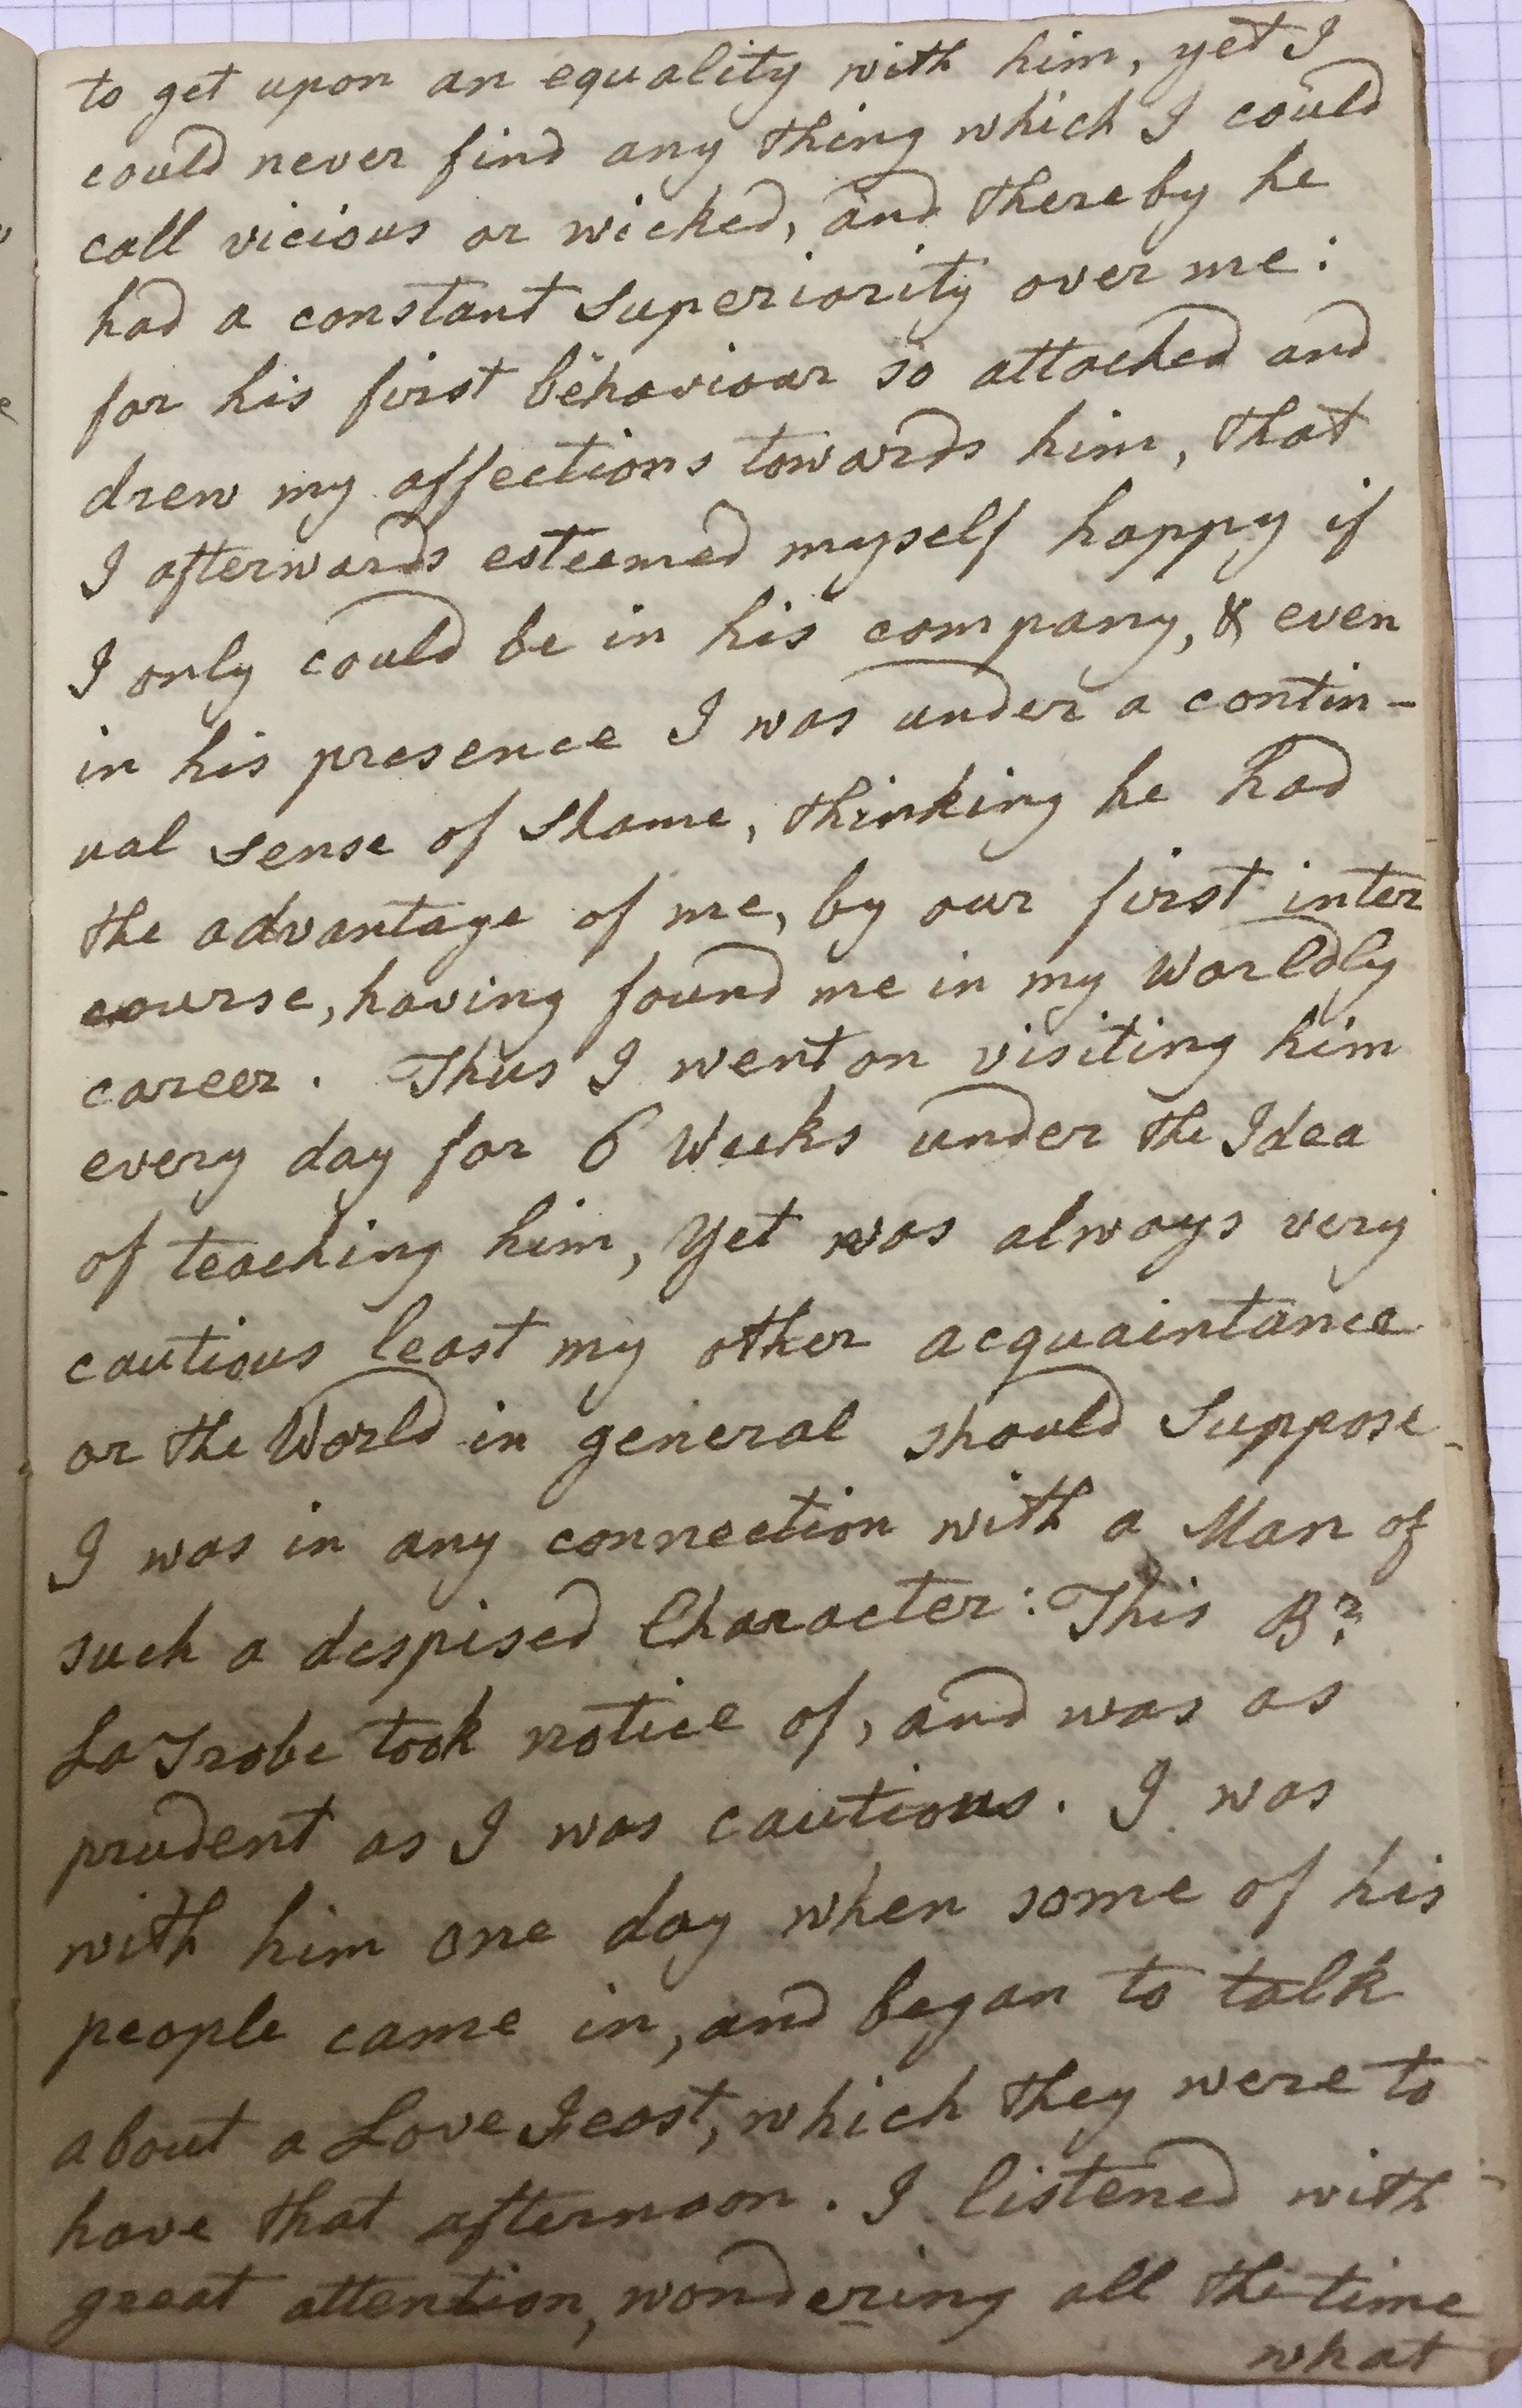 to get upon an equality with him, yet I
could never find any thing which I could
call vicious or wicked, and thereby he
had a constant Superiority over me:
for his first behaviour so attached and
drew my affections towards him, that
I afterwards esteemed myself happy if
I only could be in his company, & even
in his presence I was under a contin-
ual sense of Shame, thinking he had
the advantage of me, by our first inter
course, having found me in my Worldly
career. Thus I went on visiting him
every day for 6 Weeks under the Idea
of teaching him, Yet was always very
cautious least my other acquaintance
or the World in general should Suppose
I was in any connection with a Man of
such a despised Character: This Br.
La Trobe took notice of, and was as
prudent as I was cautious. I was
with him one day when some of his
people came in, and began to talk
about a Love Feast, which they were to
have that afternoon. I listened with
great attention, wondering all the time
what